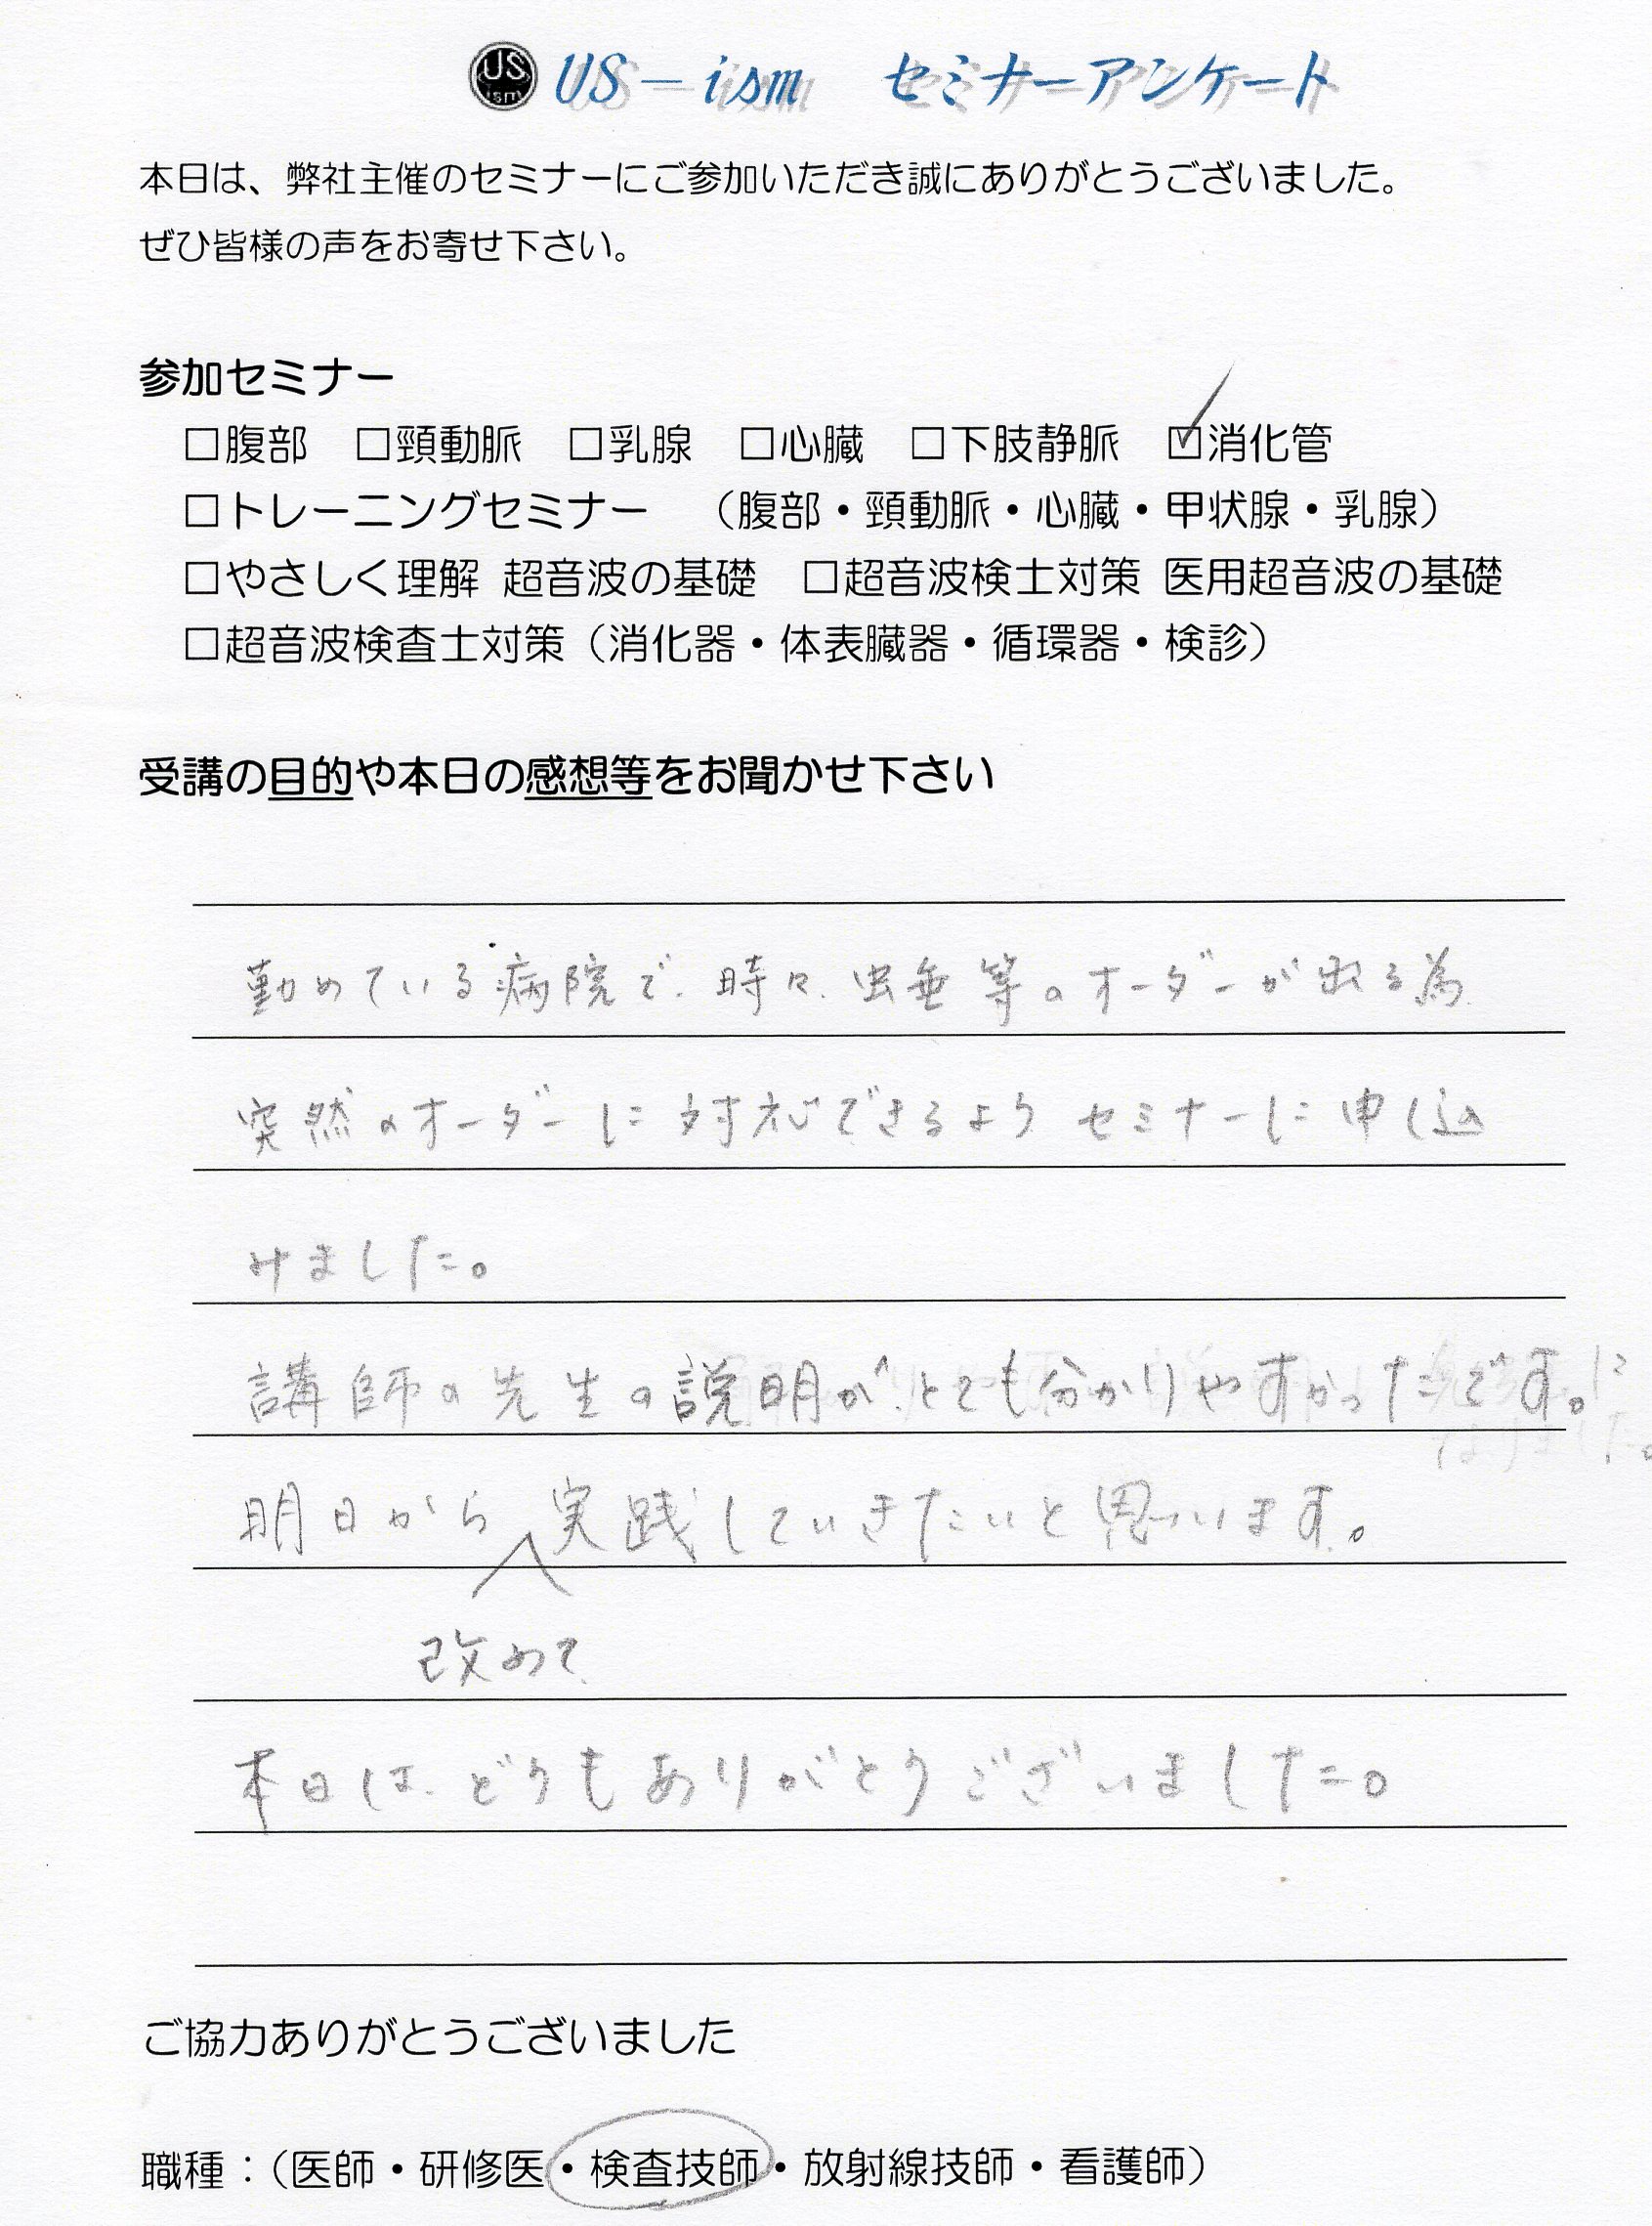 US ism US－ism セミナーアンケート
本日は、弊社主催のセミナーにご参加いただき誠にありがとうございました。
ぜひ皆様の声をお寄せ下さい。
参加セミナー
□腹部 □頸動脈 □乳腺 □心臓 □下肢静脈 ☑消化管
□トレーニングセミナー （腹部・頸動脈・心臓・甲状腺・乳腺）
□やさしく理解 超音波の基礎 □超音波検士対策 医用超音波の基礎
□超音波検査士対策（消化器・体表臓器・循環器・検診）
受講の目的や本日の感想等をお聞かせ下さい
勤めている病院で、時々、虫垂等のオーダーが出る為、
突然のオーダーに対応できるようセミナーに申し込
みました。
講師の先生の説明が、とても分かりやすかったです。
明日から実践していきたいと思います。
改めて
本日は、どうもありがとうございました。
ご協力ありがとうございました
職種：（医師・研修医・検査技師・放射線技師・看護師）